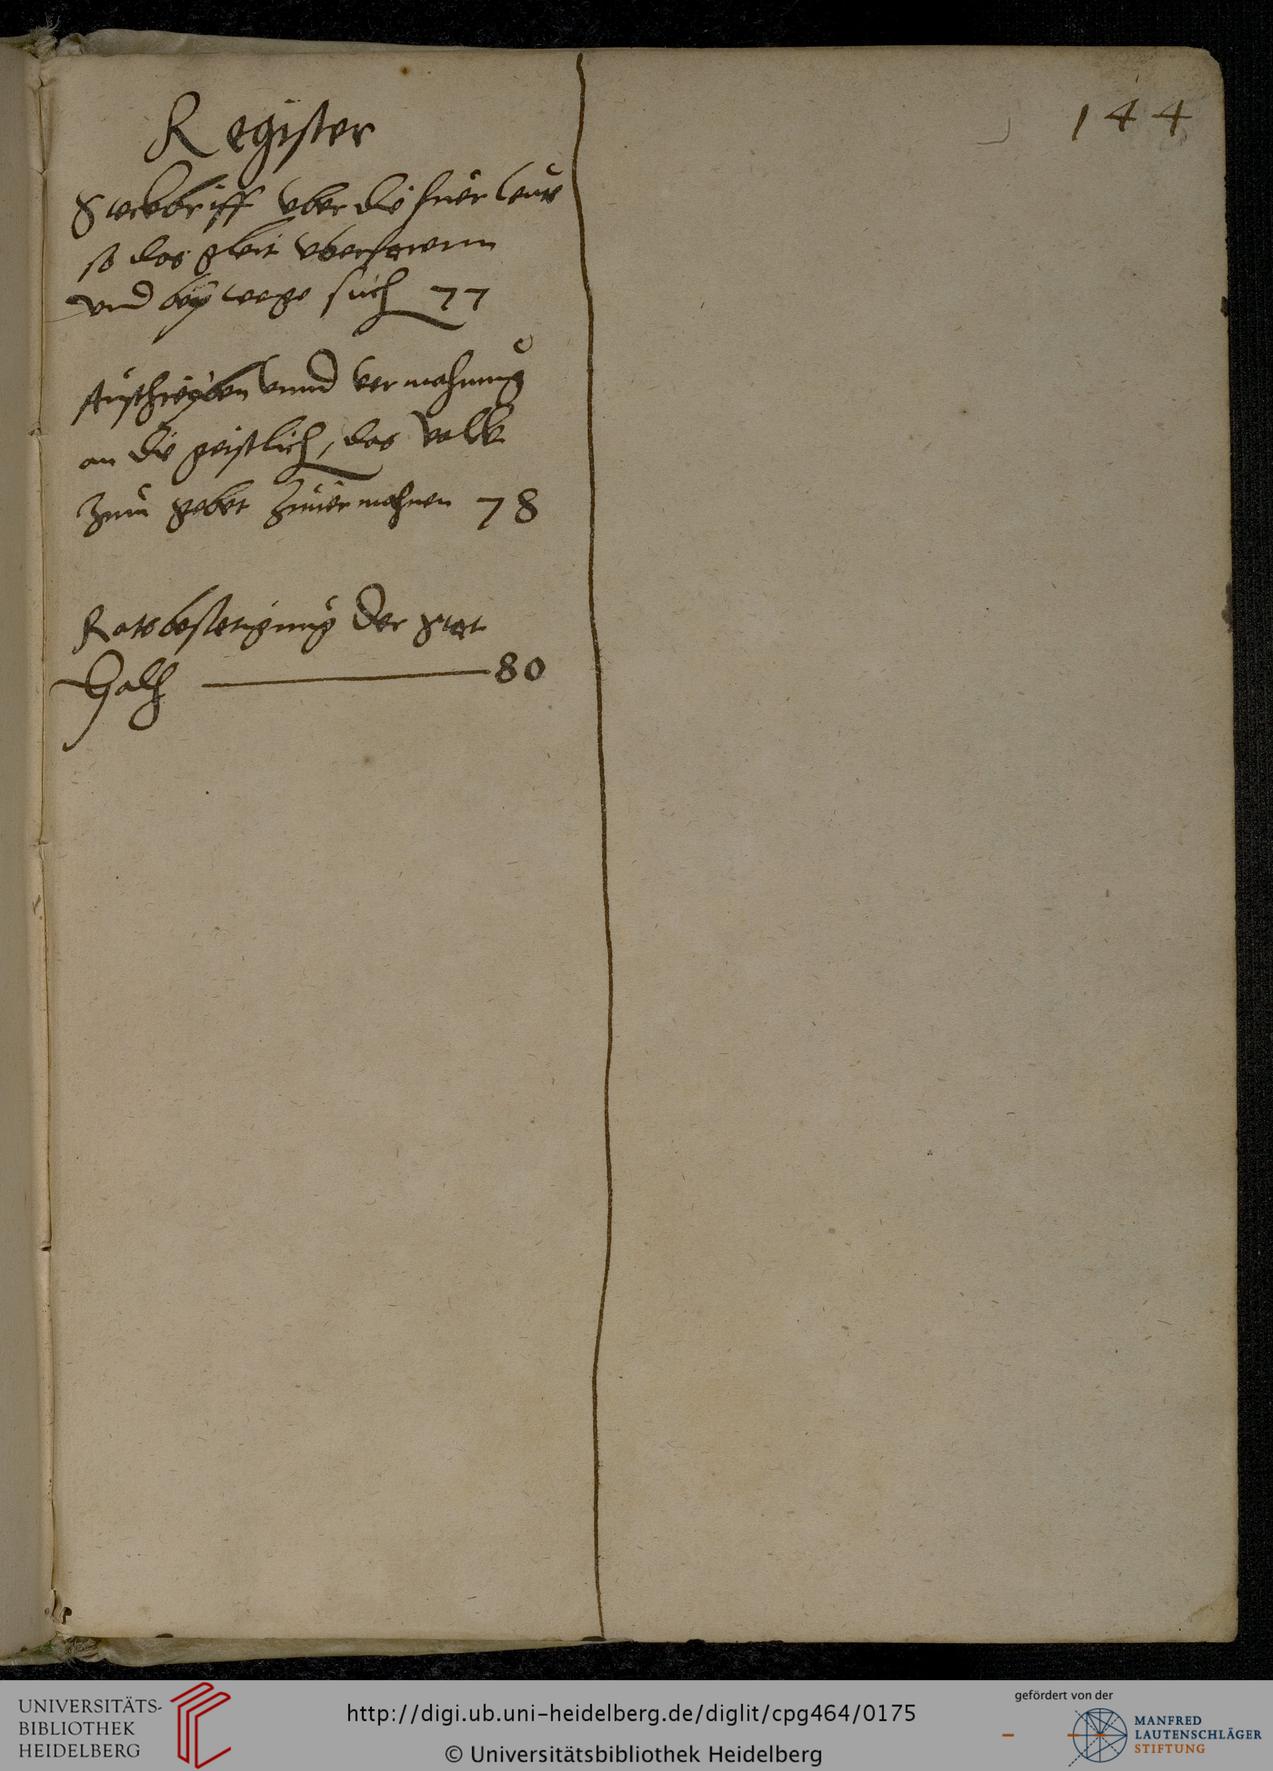 144
Register
Steckbriff uber die furleut
so das gleit uberfarenn
und beywege such 77
Außschreyben unnd vermahnung
an die geistlich, das volk
zum gebet zuuermahnen 78
Ratsbestetigung der Stat
Hall 80
UNIVERSITÄTS-
BIBLIOTHEK
HEIDELBERG
http://digi.ub.uni-heidelberg.de/diglit/cpg464/0175
© Universitätsbibliothek Heidelberg
gefördert von der
MANFRED
LAUTENSCHLÄGER
STIFTUNG